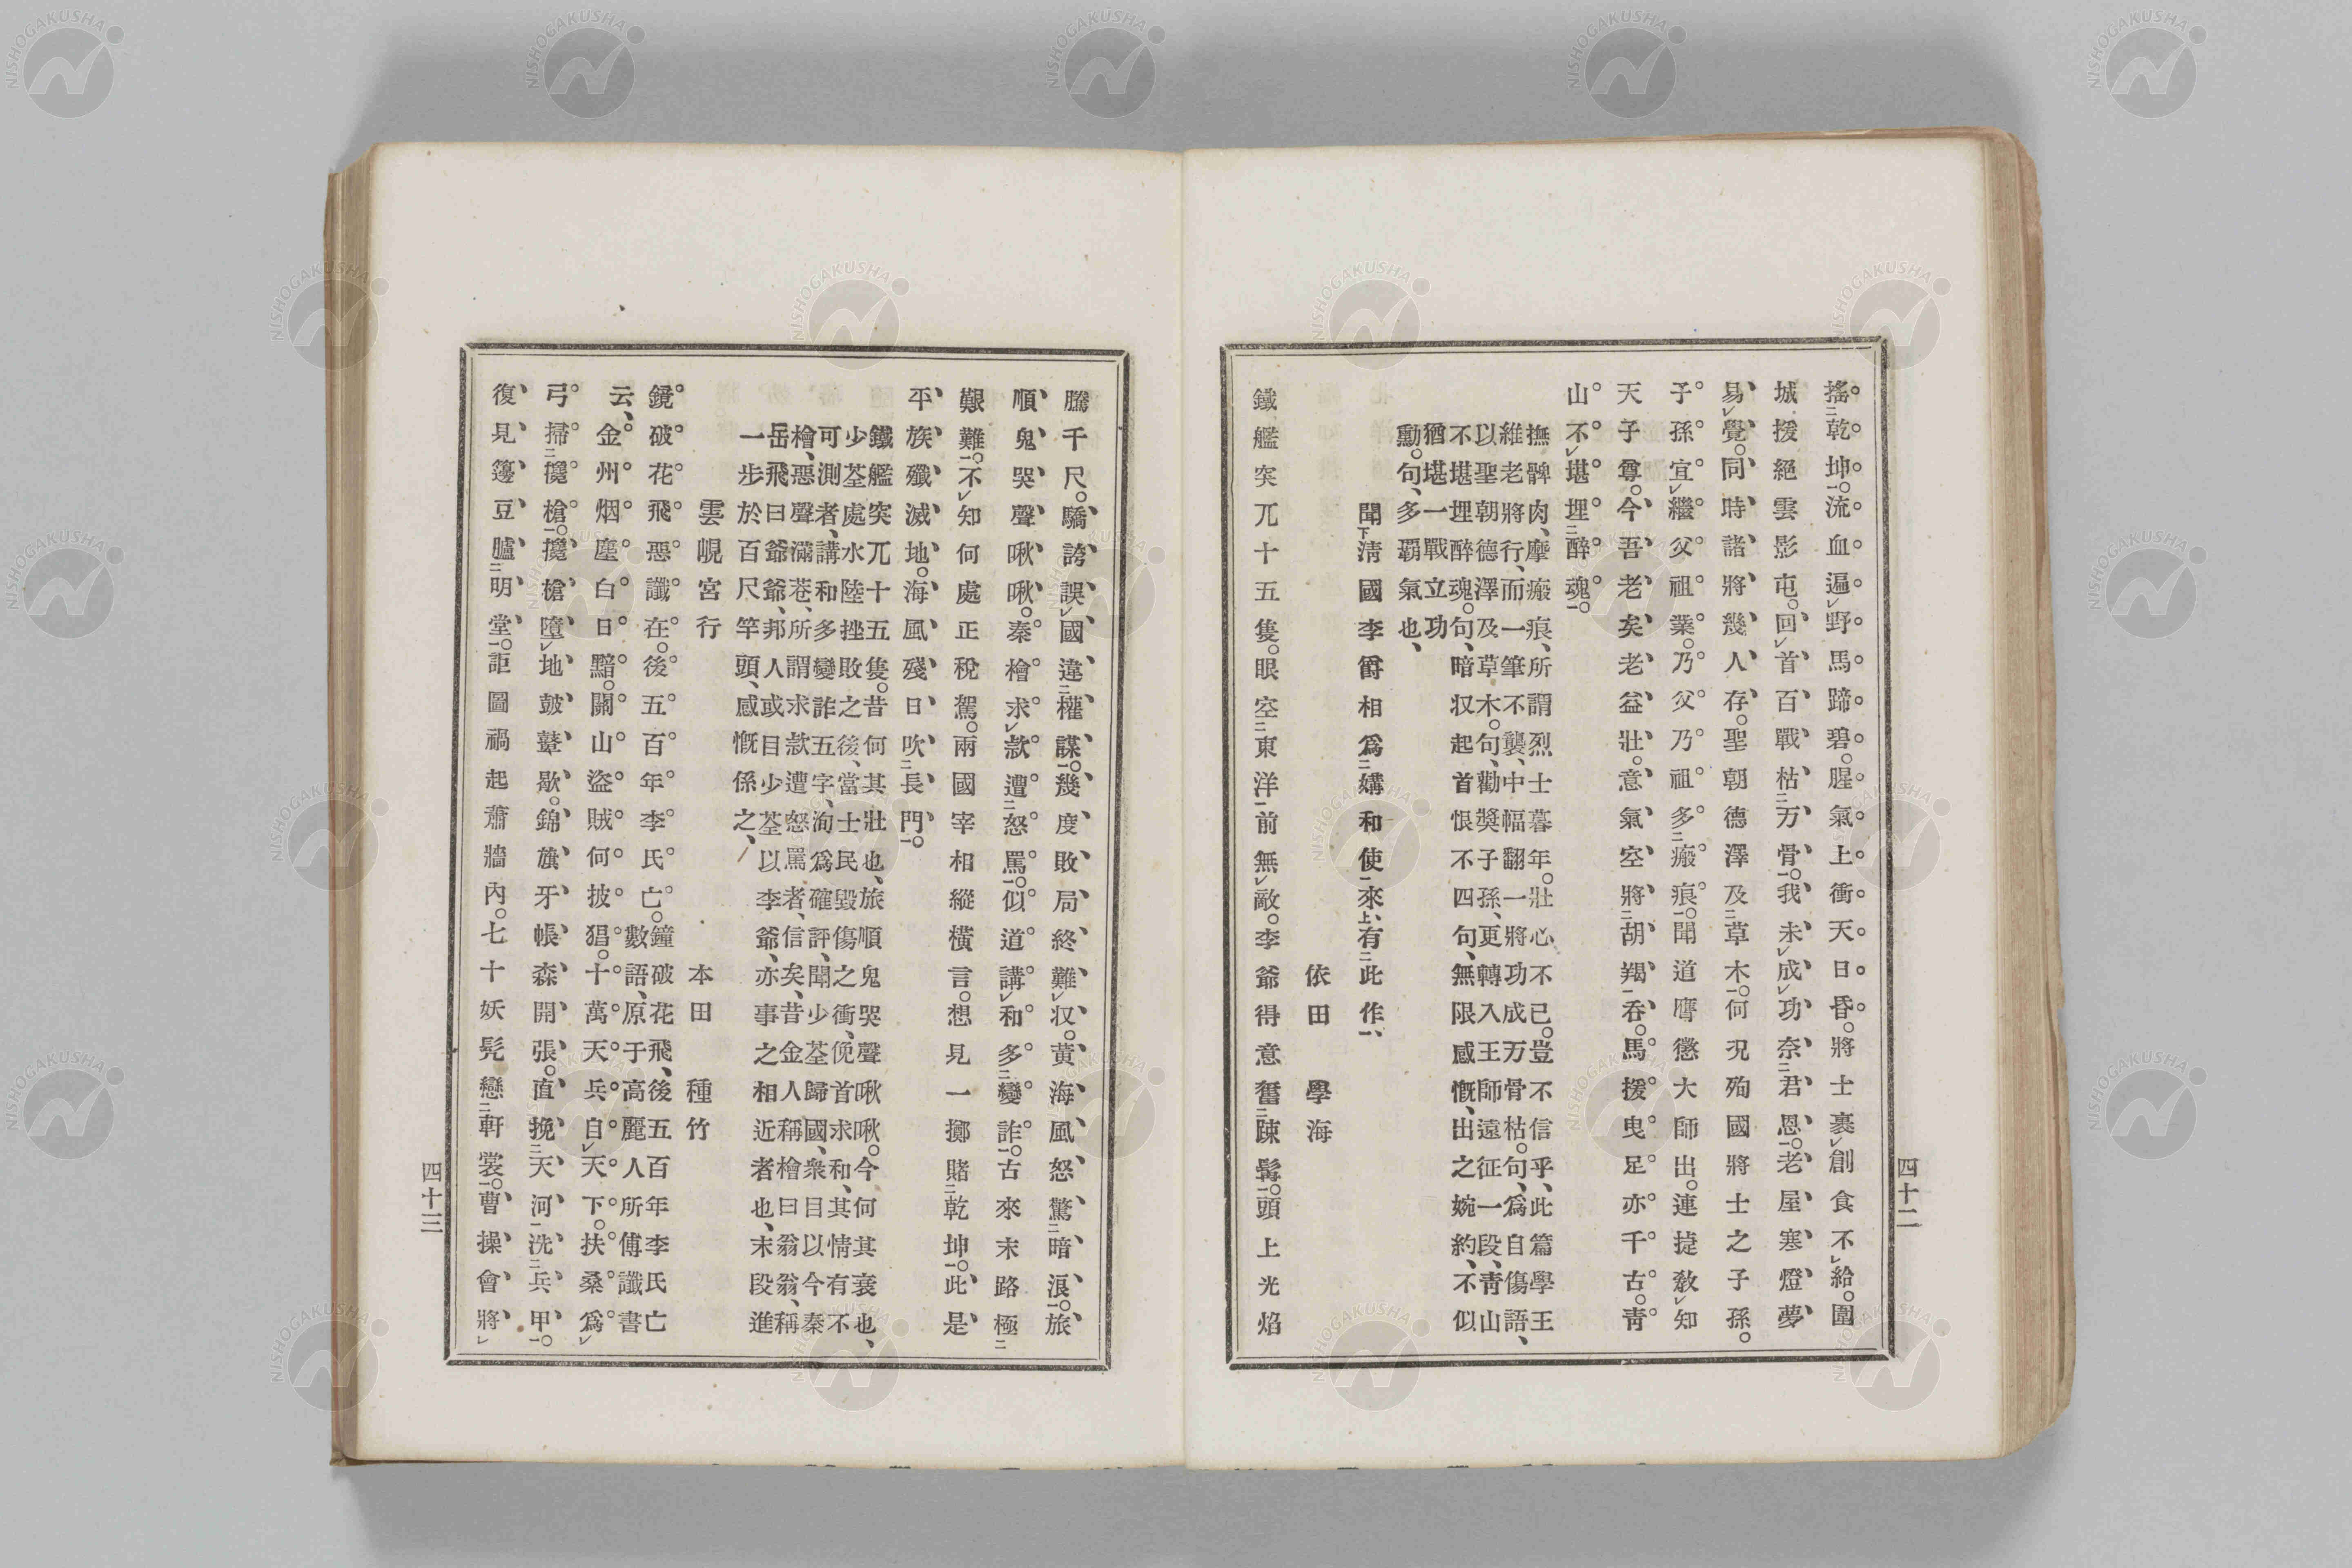 搖乾坤。流血遍野馬蹄碧。腥氣上衝天日昏。將士裹創食不給。圍
城援絕雲影屯。回首百戰枯万骨。我未成功奈君恩。老屋寒燈夢
易覺。同時諸將幾人存。聖朝德澤及草木。何況殉國將士之子孫。
子孫宜繼父祖業。乃父乃祖多瘢痕。聞道膺懲大師出。連捷敎知
天子尊。今吾老矣老益壯。意氣空將胡羯吞。馬援曳足亦千古。靑
山不堪埋醉魂。
撫髀肉、摩瘢痕、所謂烈士暮年。壯心不已。豈不信乎、此篇學王
維老將行、而一筆不襲、中幅翻一將功成万骨枯。句、爲自傷語、
以聖朝德澤及草木。句、勸獎子孫、更轉入王師遠征一段、靑山
不堪埋醉魂。句、暗収起首恨不四句、無限感慨、出之婉約、不似
猶堪一戰立功
勳。句、多覇氣也、
聞淸國李爵相爲媾和使來、有此作、
依田學海
鐵艦突兀十五隻。眼空東洋前無敵。李爺得意奮踈髯。頭上光焰
四十二
騰千尺。驕誇誤國違權謀。幾度敗局終難収。黃海風怒驚暗浪。旅
順鬼哭聲啾啾。秦檜求款遭怒罵。似道講和多變詐。古來末路極
艱難。不知何處正稅駕。兩國宰相縱橫言。想見一擲賭乾坤。此是
平族殲滅地。海風殘日吹長門。
鐵艦突兀十五隻。昔何其壯也、旅順鬼哭聲啾啾。今何其衰也、
少荃處水陸挫敗之後、當士民毀傷之衝、俛首求和、其情有不
可測者、講和多變詐五字、洵爲確評、聞少荃歸國、衆目以今秦
檜、惡聲滿巷、所謂求款遭怒罵者、信矣、昔金人稱檜曰翁翁、稱
岳飛曰爺爺、邦人或目少荃以李爺、亦事之相近者也、末段進
一步於百尺竿頭、感慨係之、
雲峴宮行 本田種竹
鏡破花飛惡讖在。後五百年李氏亡。鐘破花飛、後五百年李氏亡
數語、原于高麗人所傳讖書
云、金州烟塵白日黯。關山盜賊何披猖。十萬天兵自天下。扶桑爲
弓掃攙槍。攙槍墮地皷鼙歇。錦旗牙帳森開張。直挽天河洗兵甲。
復見籩豆臚明堂。詎圖禍起蕭牆內。七十妖髡戀軒裳。曹操會將
四十三